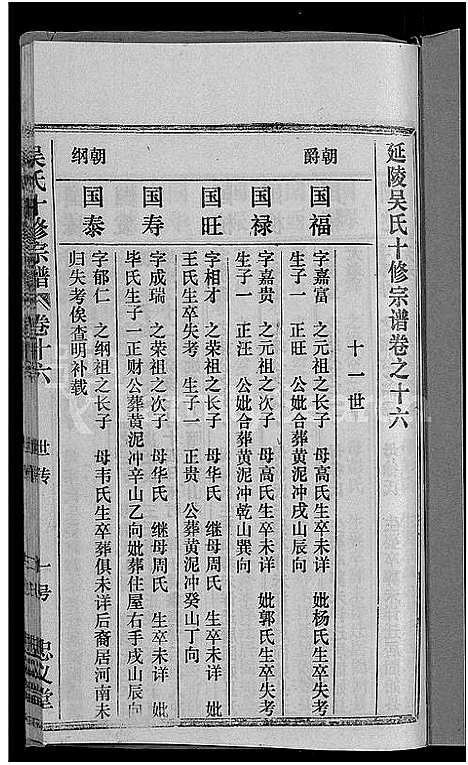 延陵吴氏十修宗谱卷之十六
十一世
朝爵
国福
字嘉富 之元祖之长子 母高氏生卒未详 妣杨氏生卒失考
生子一 正旺 公妣合葬黄泥冲戌山辰向
国禄
字嘉贵 之元祖之次子 母高氏生卒未详 妣郭氏生卒失考
生子一 正汪 公妣合葬黄泥冲乾山巽向
国旺
字相才 之荣祖之长子 母华氏 继母周氏 生卒未详 妣
王氏生卒失考 生子一 正贵 公葬黄泥冲癸山丁向
国寿
字成瑞 之荣祖之次子 母华氏 继母周氏 生卒未详 妣
毕氏生子一正财公葬黄泥冲辛山乙向妣葬住屋右手戌山辰向
朝纲
国泰
字郁仁 之纲祖之长子 母韦氏生卒葬俱未详后裔居河南未
归失考俟查明补载
吴氏十修宗谱 卷十六 世传 一号 忠义堂